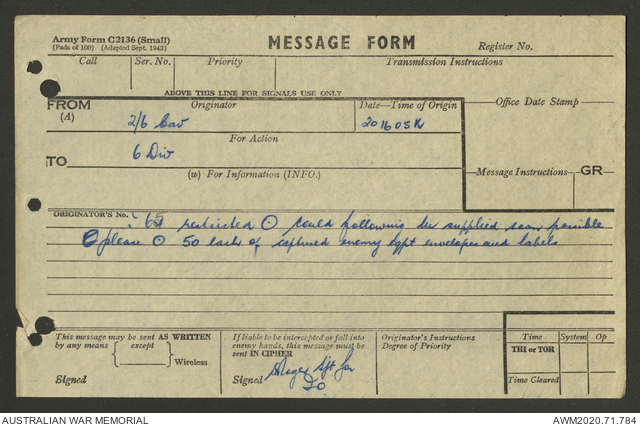 Army Form C2136 (Small)
(Pads of 100) (Adapted Sept. 1943)
MESSAGE FORM
Register No.
Call Ser. No. Priority Transmission Instructions
ABOVE THIS LINE FOR SIGNALS USE ONLY
FROM Originator Date—Time of Origin Office Date Stamp
(A) 2/6 Cav 201605K
For Action
TO 6 Div
(w) For Information (INFO.) Message Instructions GR
ORIGINATOR'S No. 65 restricted ⊙ could following be supplied soon possible
please ⊙ 50 each of captured enemy eqpt envelopes and labels
This message may be sent AS WRITTEN
by any means except
Wireless
Signed
If liable to be intercepted or fall into
enemy hands, this message must be
sent IN CIPHER
Signed
IO
Originator's Instructions
Degree of Priority
Time System Op
THI or TOR
Time Cleared
AUSTRALIAN WAR MEMORIAL AWM2020.71.784